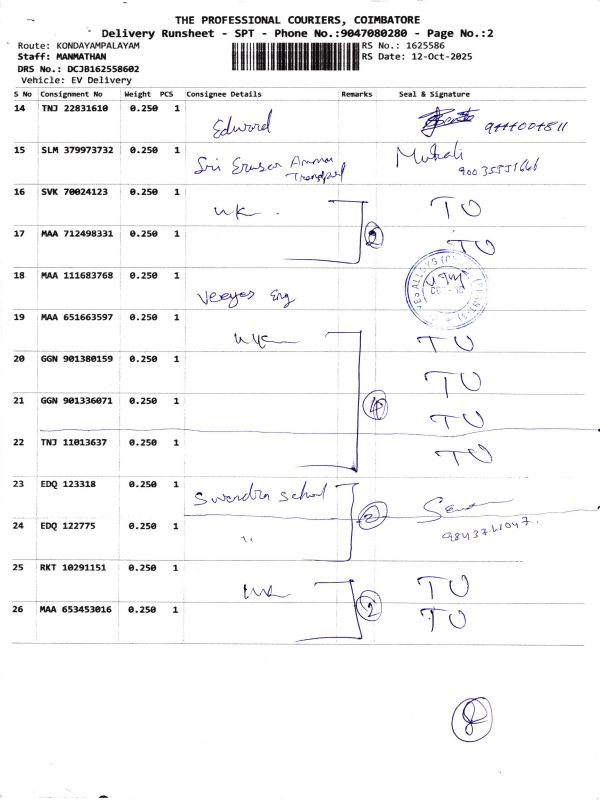 THE PROFESSIONAL COURIERS, COIMBATORE
Delivery Runsheet - SPT - Phone No.:9047080280 - Page No.:2
Route: KONDAYAMPALAYAM RS No.: 1625586
Staff: MANMATHAN RS Date: 12-Oct-2025
DRS No.: DCJB162558602
Vehicle: EV Delivery
S No Consignment No Weight PCS Consignee Details Remarks Seal & Signature
14 TNJ 22831610 0.250 1
Edward
15 SLM 379973732 0.250 1
Sri Ammar Transport Murali
16 SVK 70024123 0.250 1
UK TU
17 MAA 712498331 0.250 1
2 TU
18 MAA 111683768 0.250 1
Veeyes Eng
19 MAA 651663597 0.250 1
UK TU
20 GGN 901380159 0.250 1
TU
21 GGN 901336071 0.250 1
4 TU
22 TNJ 11013637 0.250 1
TU
23 EDQ 123318 0.250 1
Surendra School 2
24 EDQ 122775 0.250 1
"
25 RKT 10291151 0.250 1
UK TU
26 MAA 653453016 0.250 1
2 TU
8